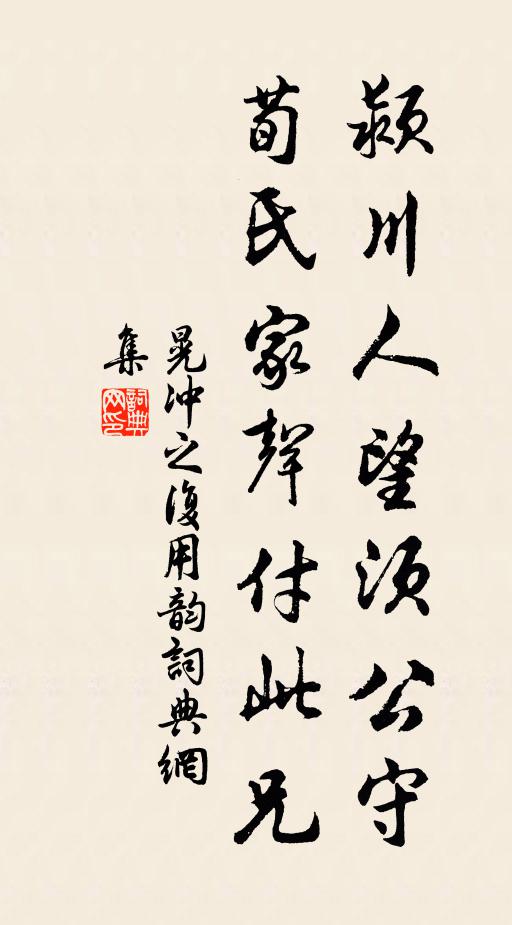 潁川人望須公守
荀氏家聲付此兄
晁沖之復用韵詞典網
集
詞典
网印